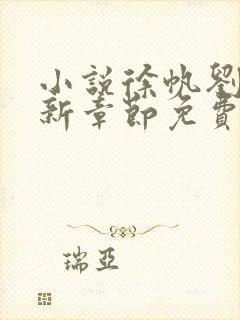 小説徐帆劉
新章節免費
瑞亞